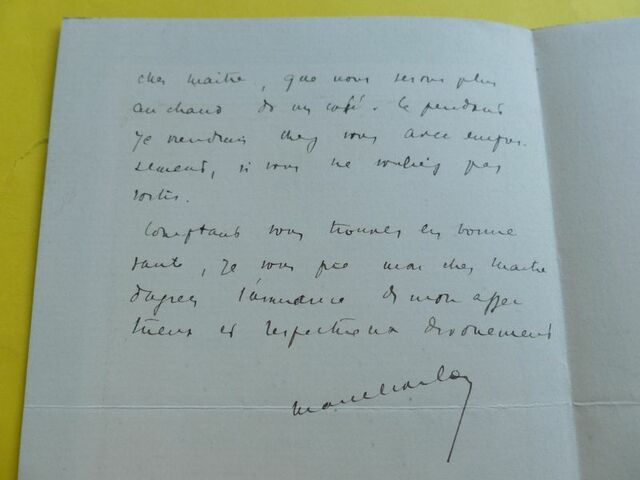 cher maître, que nous serons plus
au chaud de un café. Cependant
je viendrais chez vous avec empres-
sement, si vous ne vouliez pas
sortir.
Comptant vous trouver en bonne
santé, je vous prie mon cher Maître
d'agréer l'assurance de mon affec
tueux et respectueux dévouement